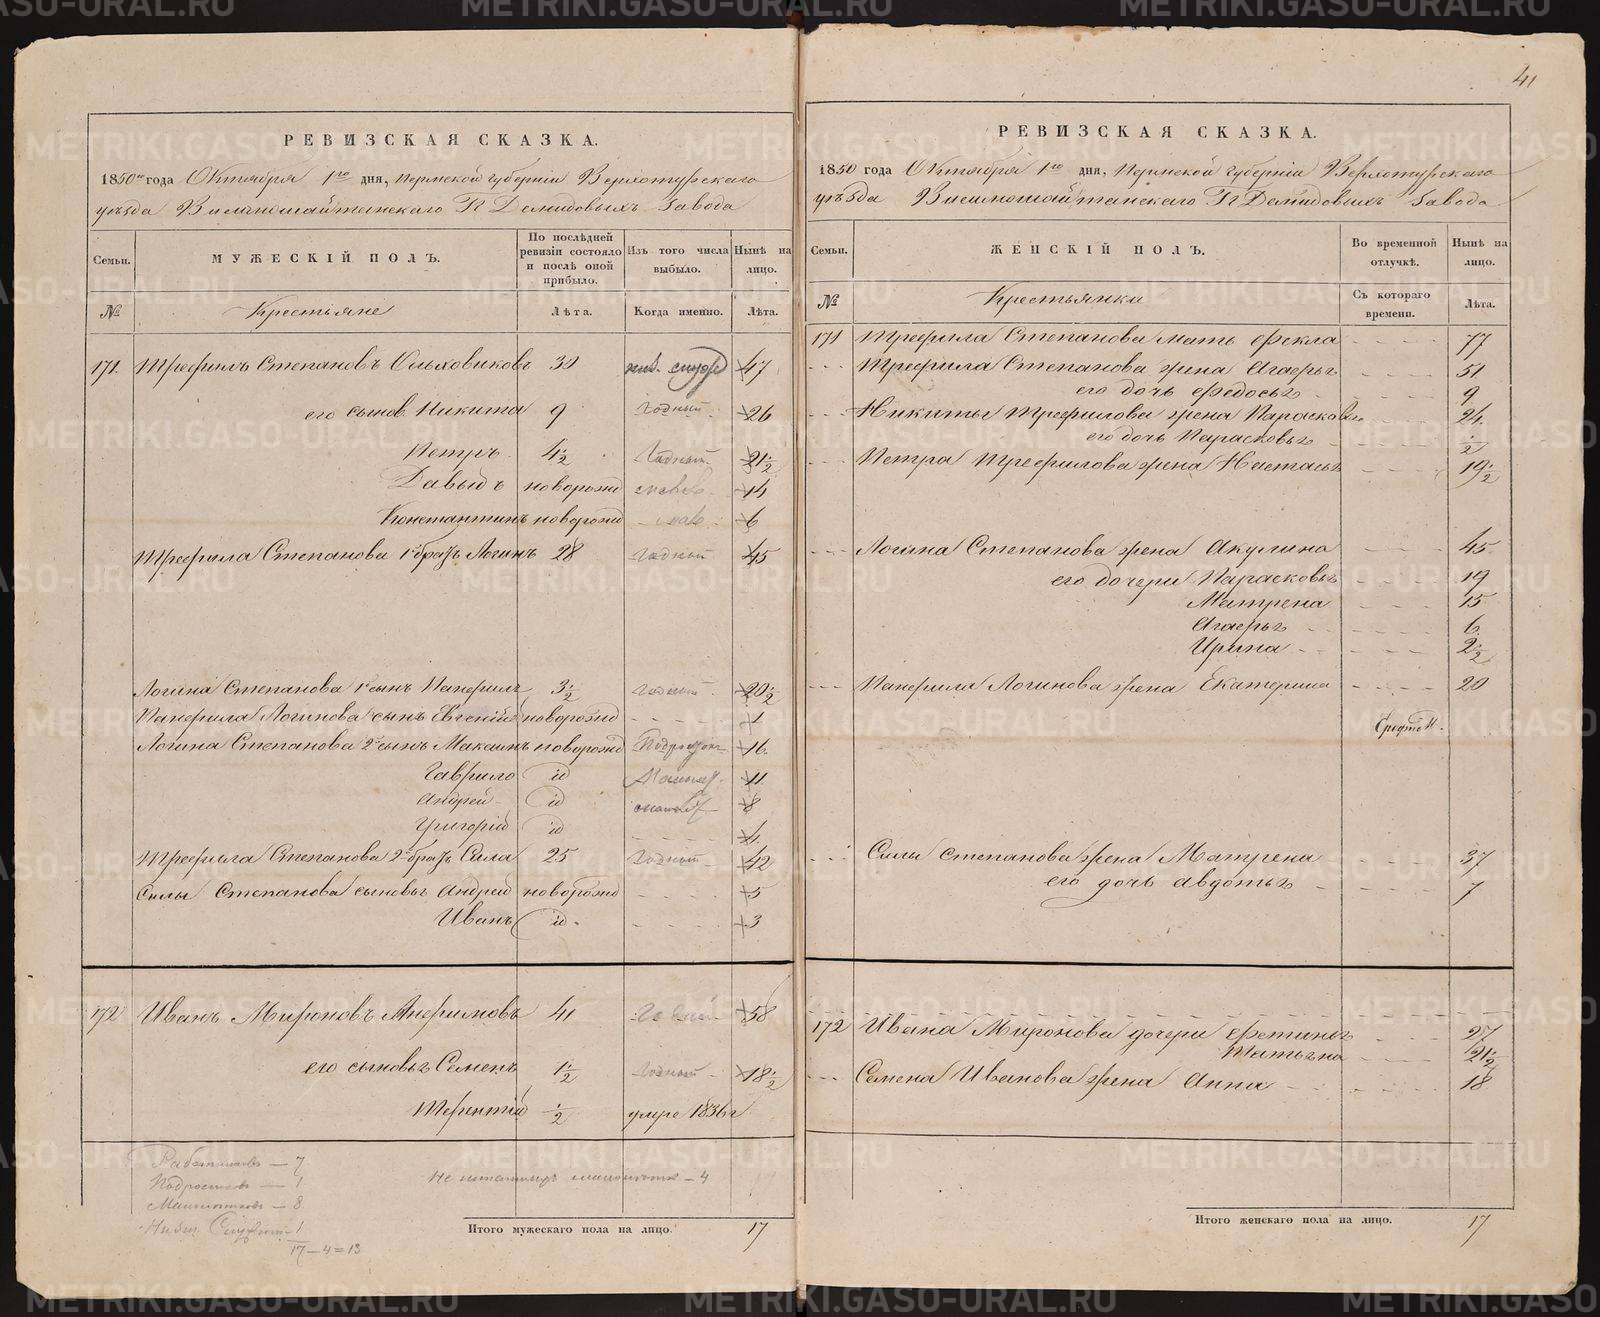 41
РЕВИЗСКАЯ СКАЗКА.
1850го года Октября 1го дня, Пермской Губерніи Верхотурскаго
уѣзда Висимошайтанскаго Гг Демидовыхъ Завода
Семьи.
МУЖЕСКІЙ ПОЛЪ.
По послѣдней ревизіи состояло и послѣ оной прибыло.
Изъ того числа выбыло.
Нынѣ на лицо.
№ Крестьяне Лѣта. Когда именно. Лѣта.
171. Трефилъ Степановъ Ольховиковъ 30 47
его сынов. Никита 9 Годный 26
Петръ 4½ Годный 21½
Давыдъ новорожд 14
Константинъ новорожд 6
Трефила Степанова 1й братъ Логинъ 28 Годный 45
Логина Степанова 1й сынъ Панфилъ 3½ Годный 20½
Панфила Логинова сынъ Евгеній новорожд - - - - 1
Логина Степанова 2й сынъ Максимъ новорожд Подросток 16
Гаврило id 11
Андрей id 8
Григорій id - - - - 4
Трефила Степанова 2й братъ Сила 25 Годный 42
Силы Степанова сыновья Андрей новорожд - - - - 5
Иванъ id - - - - 3
172 Иванъ Мироновъ Анфимовъ 41 58
его сыновья Семенъ 1½ Годный 18½
Терентій ½ умре 1836г
Работников — 7
Подростков — 1
Малолетков — 8
Низш. Служит. — 1
17 — 4 = 13
Не малолеток — 4
Итого мужескаго пола на лицо. 17
РЕВИЗСКАЯ СКАЗКА.
1850 года Октября 1го дня, Пермской Губерніи Верхотурскаго
уѣзда Висимошайтанскаго Гг Демидовыхъ Завода
Семьи.
ЖЕНСКІЙ ПОЛЪ.
Во временной отлучкѣ.
Нынѣ на лицо.
№ Крестьянки Съ котораго времени. Лѣта.
171 Трефила Степанова мать Фекла - - - - 77
- - - Трефила Степанова жена Агафья - - - - 51
его дочь Федосья - - - - 9
- - - Никиты Трефилова жена Парасковья - - - - 24
его дочь Парасковья - - - - ½
- - - Петра Трефилова жена Настасья - - - - 19½
- - - Логина Степанова жена Акулина - - - - 45
его дочери Парасковья - - - - 19
Матрена - - - - 15
Агафья - - - - 6
Ирина - - - - 2½
- - - Панфила Логинова жена Екатерина - - - - 20
- - - Силы Степанова жена Матрена - - - - 37
его дочь Авдотья - - - - 7
172 Ивана Миронова дочери Фетинья - - - - 27
Татьяна - - - - 21½
- - - Семена Иванова жена Анна - - - - 18
Итого женскаго пола на лицо. 17
METRIKI.GASO-URAL.RU